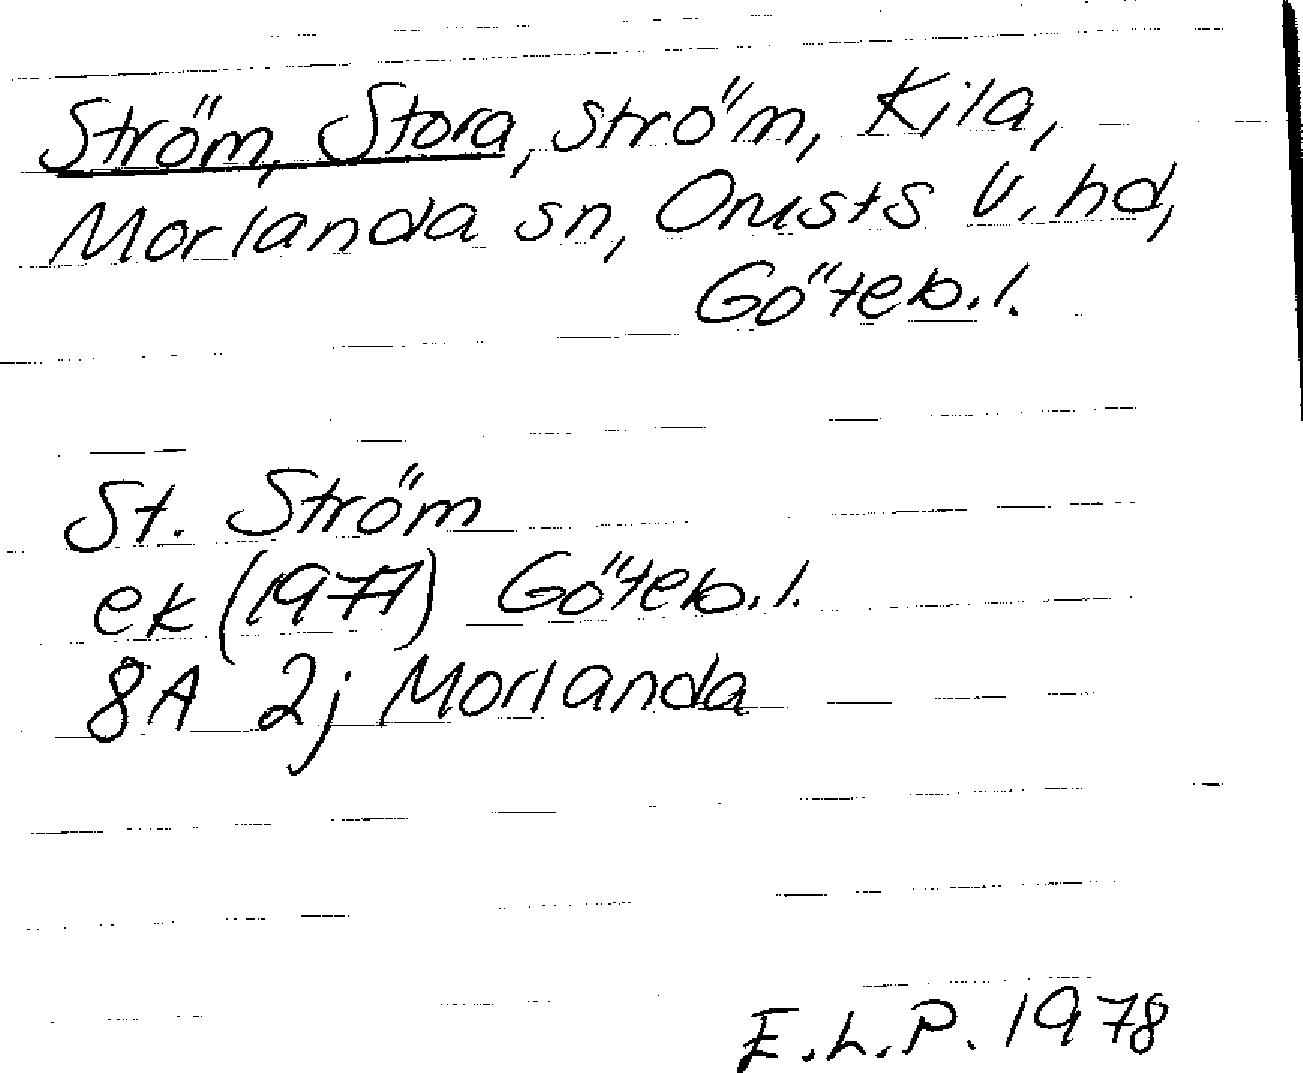 Ström, Stora, ström, Kila,
Morlanda sn, Orusts V. hd,
Göteb.l.
St. Ström
ek (1977) Göteb.l.
8A 2j Morlanda
E.L.P. 1978